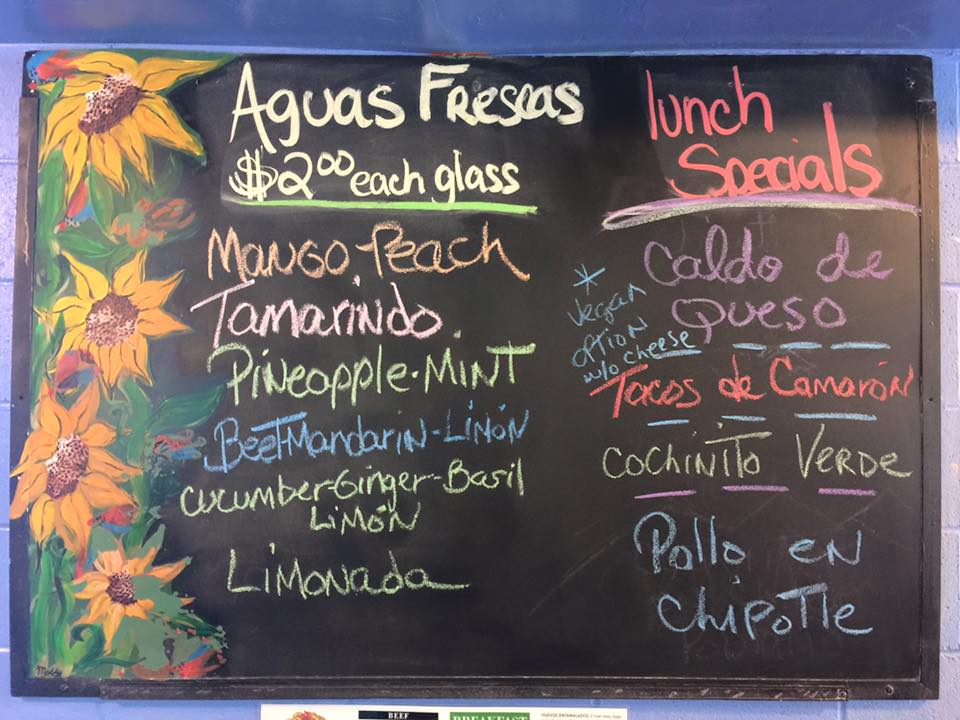 Aguas Frescas
$2.00 each glass
Mango-Peach
Tamarindo
Pineapple-Mint
Beet-Mandarin-Limón
Cucumber-Ginger-Basil
Limón
Limonada
lunch
Specials
Caldo de
Queso
* vegan
option
w/o cheese
Tacos de Camarón
Cochinito Verde
Pollo en
Chipotle
BEEF
BREAKFAST